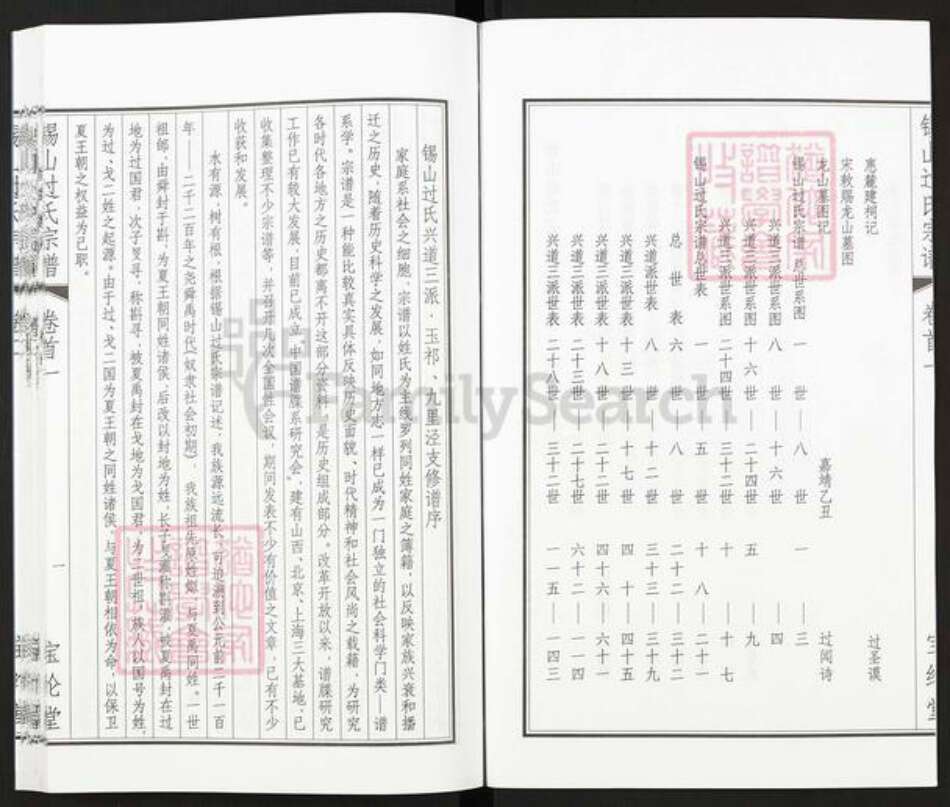 锡山过氏宗谱
卷首一
宝纶堂
惠麓建祠记 过圣谟
宋敕赐龙山墓图
龙山墓图记 嘉靖乙丑 过闻诗
锡山过氏宗谱总世系图 一世——八世 一——三
兴道三派世系图 八世——十六世 四
兴道三派世系图 十六世——二十四世 五——九
兴道三派世系图 二十四世——三十二世 十——十七
锡山过氏宗谱总世表 一世——五世 十八——二十一
总世表 六世——八世 二十二——三十二
兴道派世表 八世——十二世 三十三——三十九
兴道三派世表 十三世——十七世 四十——四十五
兴道三派世表 十八世——二十二世 四十六——六十一
兴道三派世表 二十三世——二十七世 六十二——一一四
兴道三派世表 二十八世——三十二世 一一五——一四三
锡山过氏兴道三派·玉祁、九里泾支修谱序
家庭系社会之细胞，宗谱以姓氏为主线罗列同姓家庭之簿籍，以反映家族兴衰和播
迁之历史，随着历史科学之发展，如同地方志一样已成为一门独立的社会科学门类——谱
系学。宗谱是一种能比较真实具体反映历史面貌、时代精神和社会风尚之载籍，为研究
各时代各地方之历史都离不开这部分资料，是历史组成部分。改革开放以来，谱牒研究
工作已有较大发展，目前已成立“中国谱牒系研究会”，建有山西、北京、上海三大基地，已
收集整理不少宗谱等，并召开几次全国性会议，期间发表不少有价值之文章，已有不少
收获和发展。
水有源，树有根，根据锡山过氏宗谱记述，我族源远流长，可追溯到公元前二千一百
年——二千二百年之尧舜禹时代(奴隶社会初期)，我族祖先原姓姒，与夏禹同姓。一世
祖郎，由舜封于斟，为夏王朝同姓诸侯，后改以封地为姓，长子戈灌称斟灌，被夏禹封在过
地为过国君，次子戈寻，称斟寻，被夏禹封在戈地为戈国君，为二世祖，族人以国号为姓，
为过、戈二姓之起源。由于过、戈二国为夏王朝之同姓诸侯，与夏王朝相依为命，以保卫
夏王朝之权益为己职。
锡山过氏宗谱
卷首一
一
宝纶堂
FamilySearch